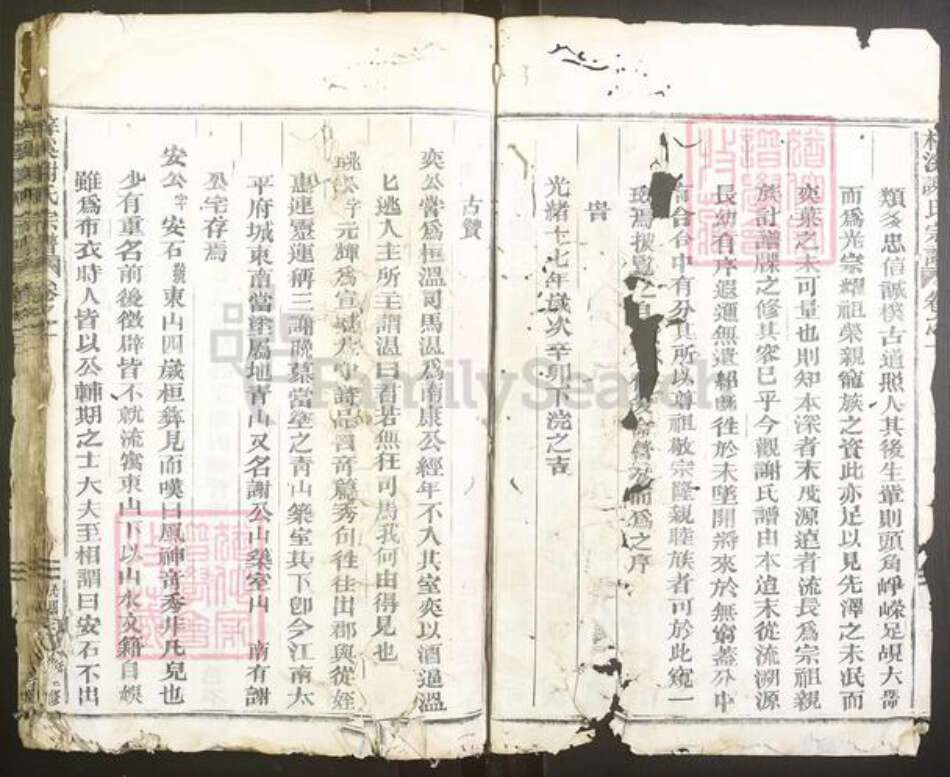 類多忠信誠樸古道照人其後生輩則頭角崢嶸足覘大器
而爲光宗耀祖榮親寵族之資此亦足以見先澤之未泯而
奕葉之未可量也則知本深者末茂源遠者流長爲宗祖親
族計譜牒之修其容已乎今觀謝氏譜由本追末從流溯源
長幼有序遐邇無遺紹旣往於未墜開將來於無窮蓋分中
有合合中有分其所以尊祖敬宗隆親睦族者可於此窺一
而爲之序
旹
光緒十七年歲次辛卯下浣之吉
古贊
奕公嘗爲桓溫司馬溫爲南康公經年不入其室奕以酒逼溫
匕逃人主所主謂溫曰君若無狂司馬我何由得見也
朓公字元輝爲宣城太守詩品曰奇篇秀句往往出郡與從姪
惠連靈運稱三謝聯墓當塗之青山築室其下卽今江南太
平府城東南當塗屬地青山又名謝公山築室山南有謝
公宅存焉
安公字安石號東山四歲桓彝見而嘆曰風神音秀非凡兒也
少有重名前後徵辟皆不就流寓東山下以山水文籍自娛
雖爲布衣時人皆以公輔期之士大夫至相謂曰安石不出
FamilySearch